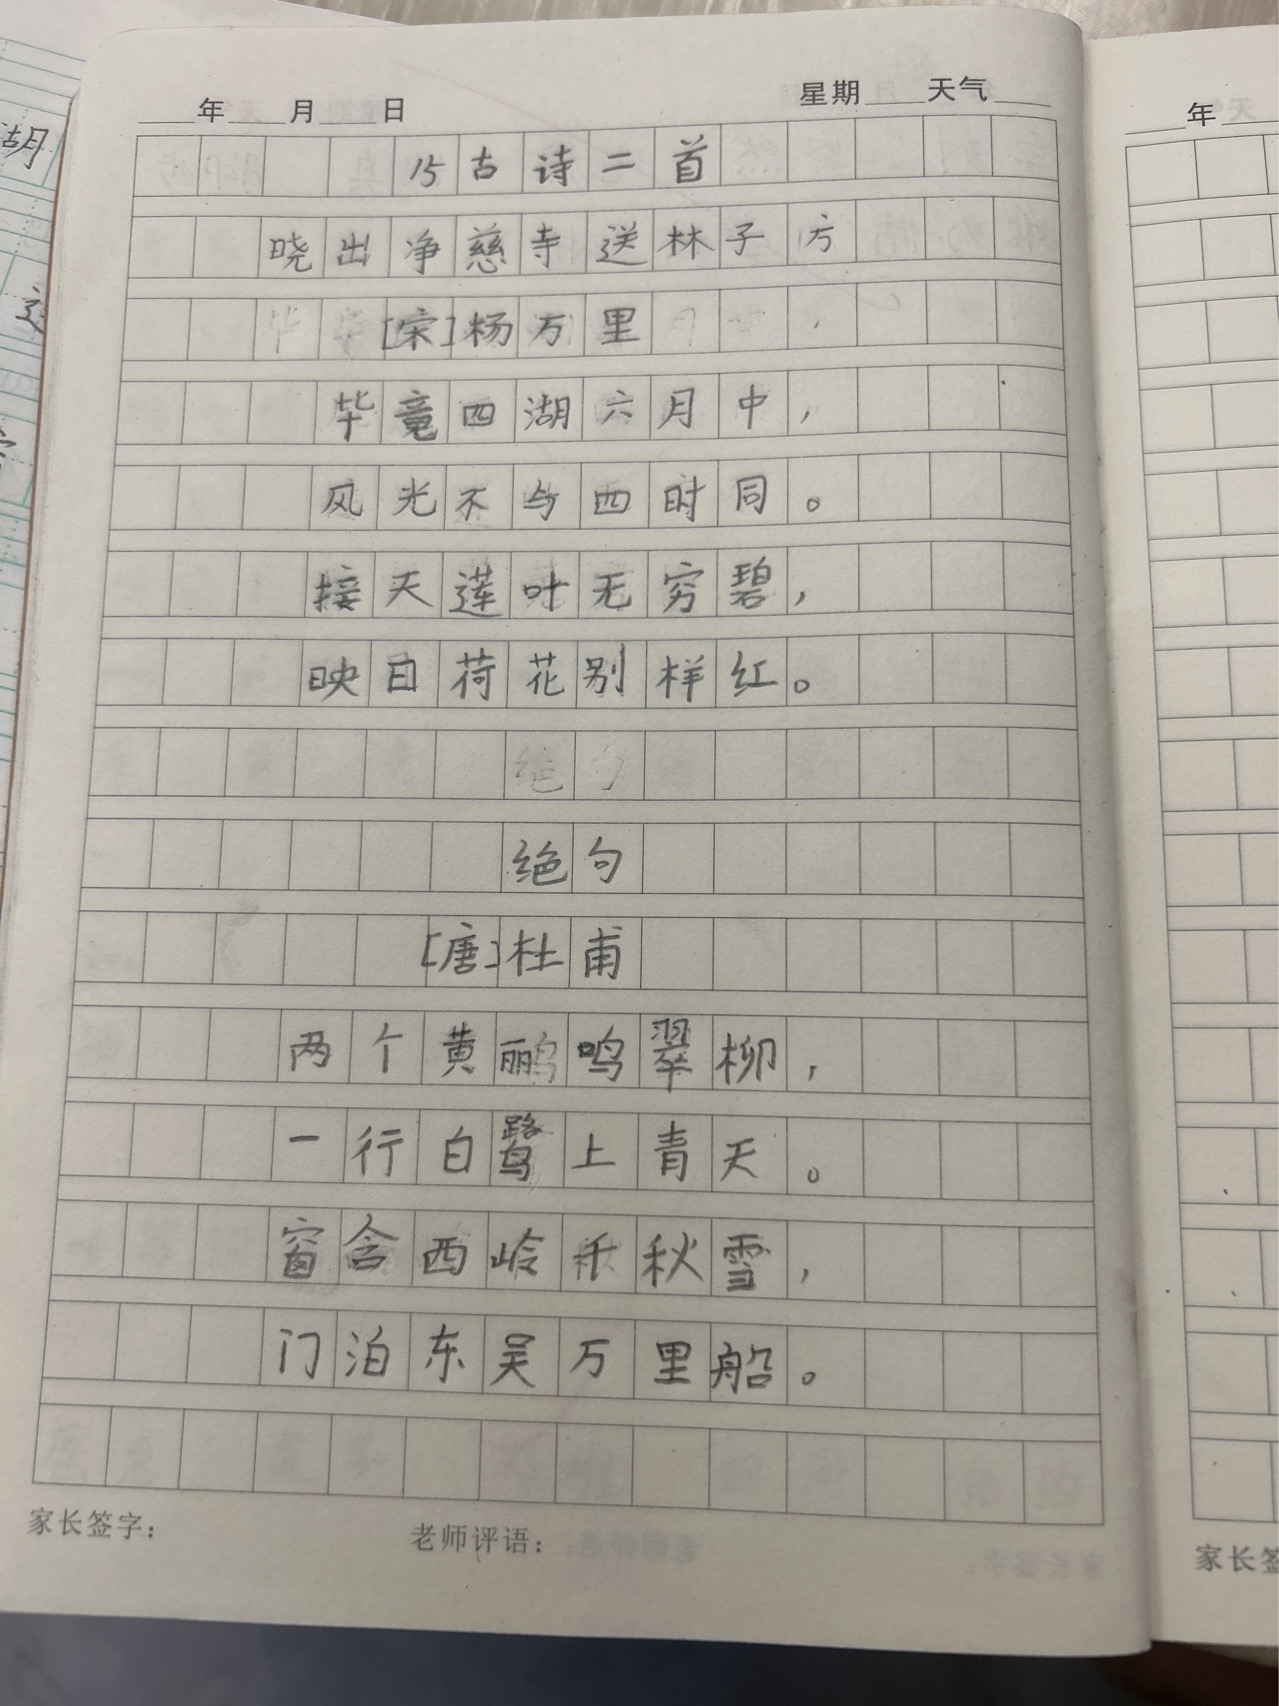 年 月 日 星期 天气
15古诗二首
晓出净慈寺送林子方
[宋]杨万里
毕竟四湖六月中，
风光不与四时同。
接天莲叶无穷碧，
映日荷花别样红。
绝句
绝句
[唐]杜甫
两个黄鹂鸣翠柳，
一行白鹭上青天。
窗含西岭千秋雪，
门泊东吴万里船。
家长签字： 老师评语：
湖
年
家长签